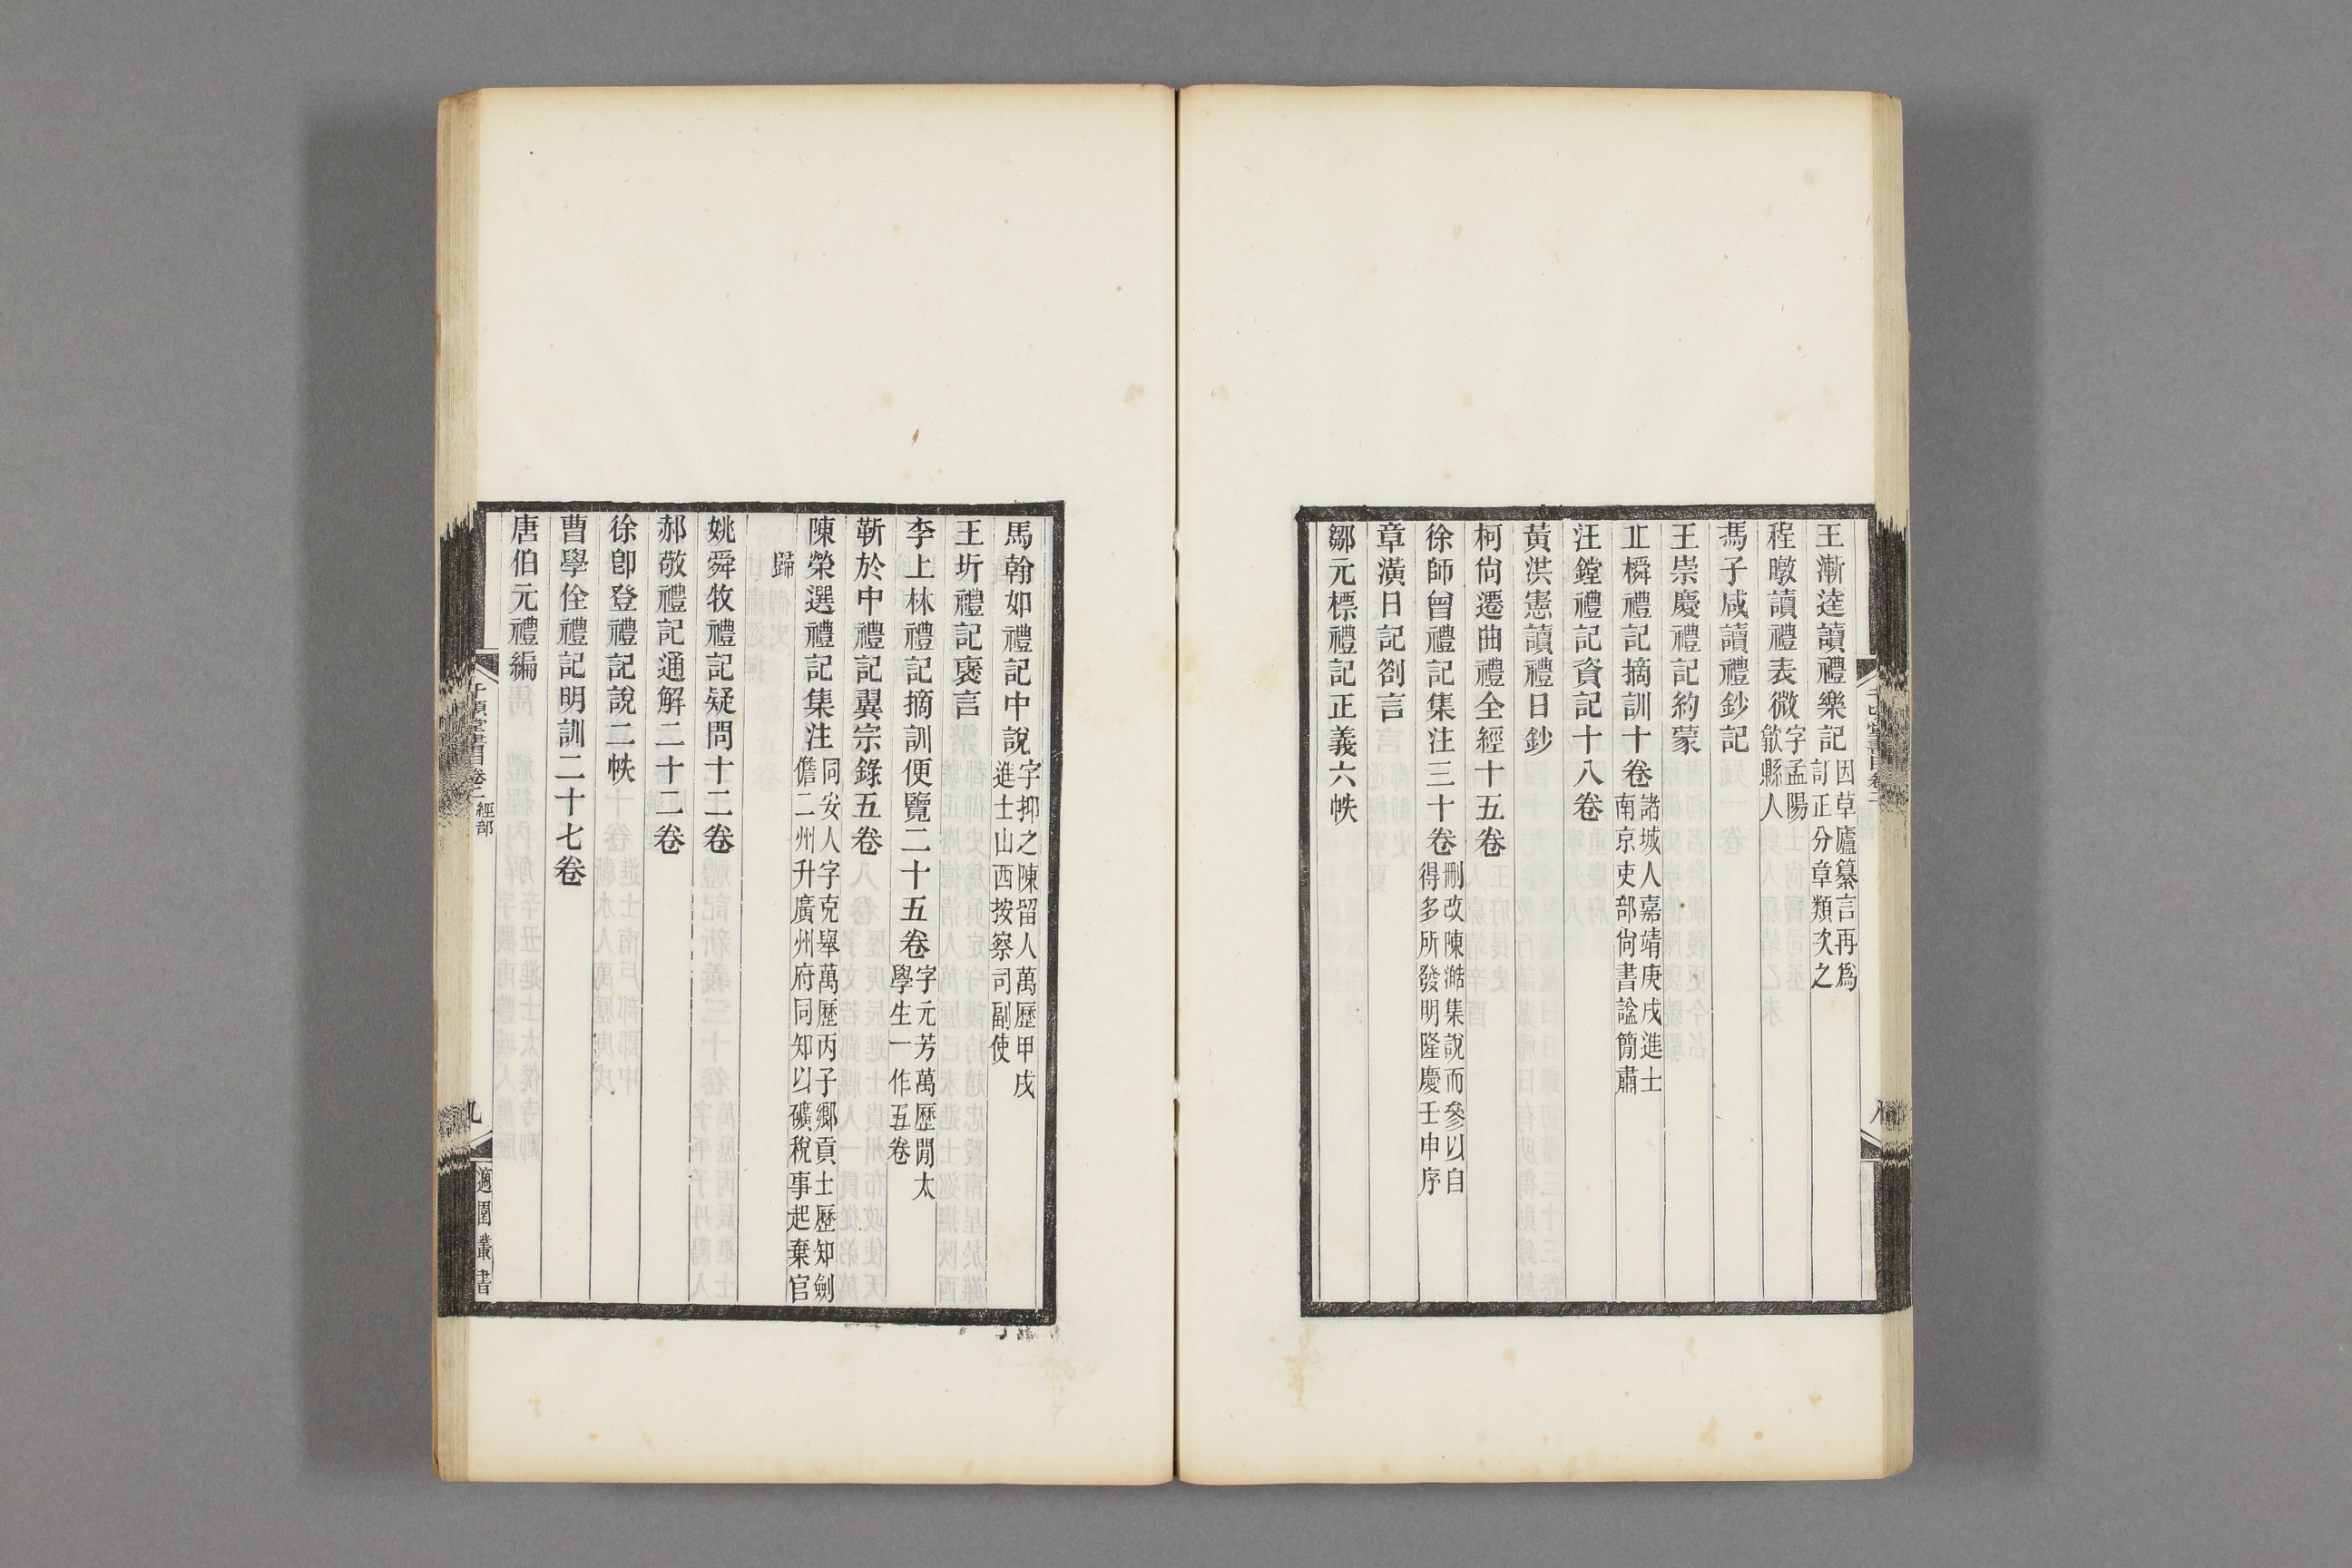 王漸逵讀禮樂記因草廬纂言再爲訂正分章類次之
程暾讀禮表微字孟陽歙縣人
馮子咸讀禮鈔記
王崇慶禮記約蒙
丘橓禮記摘訓十卷諸城人嘉靖庚戌進士南京吏部尚書諡簡肅
汪鏜禮記資記十八卷
黃洪憲讀禮日鈔
柯尙遷曲禮全經十五卷
徐師曾禮記集注三十卷刪改陳澔集說而參以自得多所發明隆慶壬申序
章潢日記劄言
鄒元標禮記正義六帙
馬翰如禮記中說字抑之陳留人萬歷甲戌進士山西按察司副使
王圻禮記裒言
李上林禮記摘訓便覽二十五卷字元芳萬歷閒太學生一作五卷
靳於中禮記翼宗錄五卷
陳榮選禮記集注同安人字克舉萬歷丙子鄉貢士歷知劍儋二州升廣州府同知以礦稅事起棄官
歸
姚舜牧禮記疑問十二卷
郝敬禮記通解二十二卷
徐卽登禮記說二帙
曹學佺禮記明訓二十七卷
唐伯元禮編
千頃堂書目卷二 經部
九
適園叢書